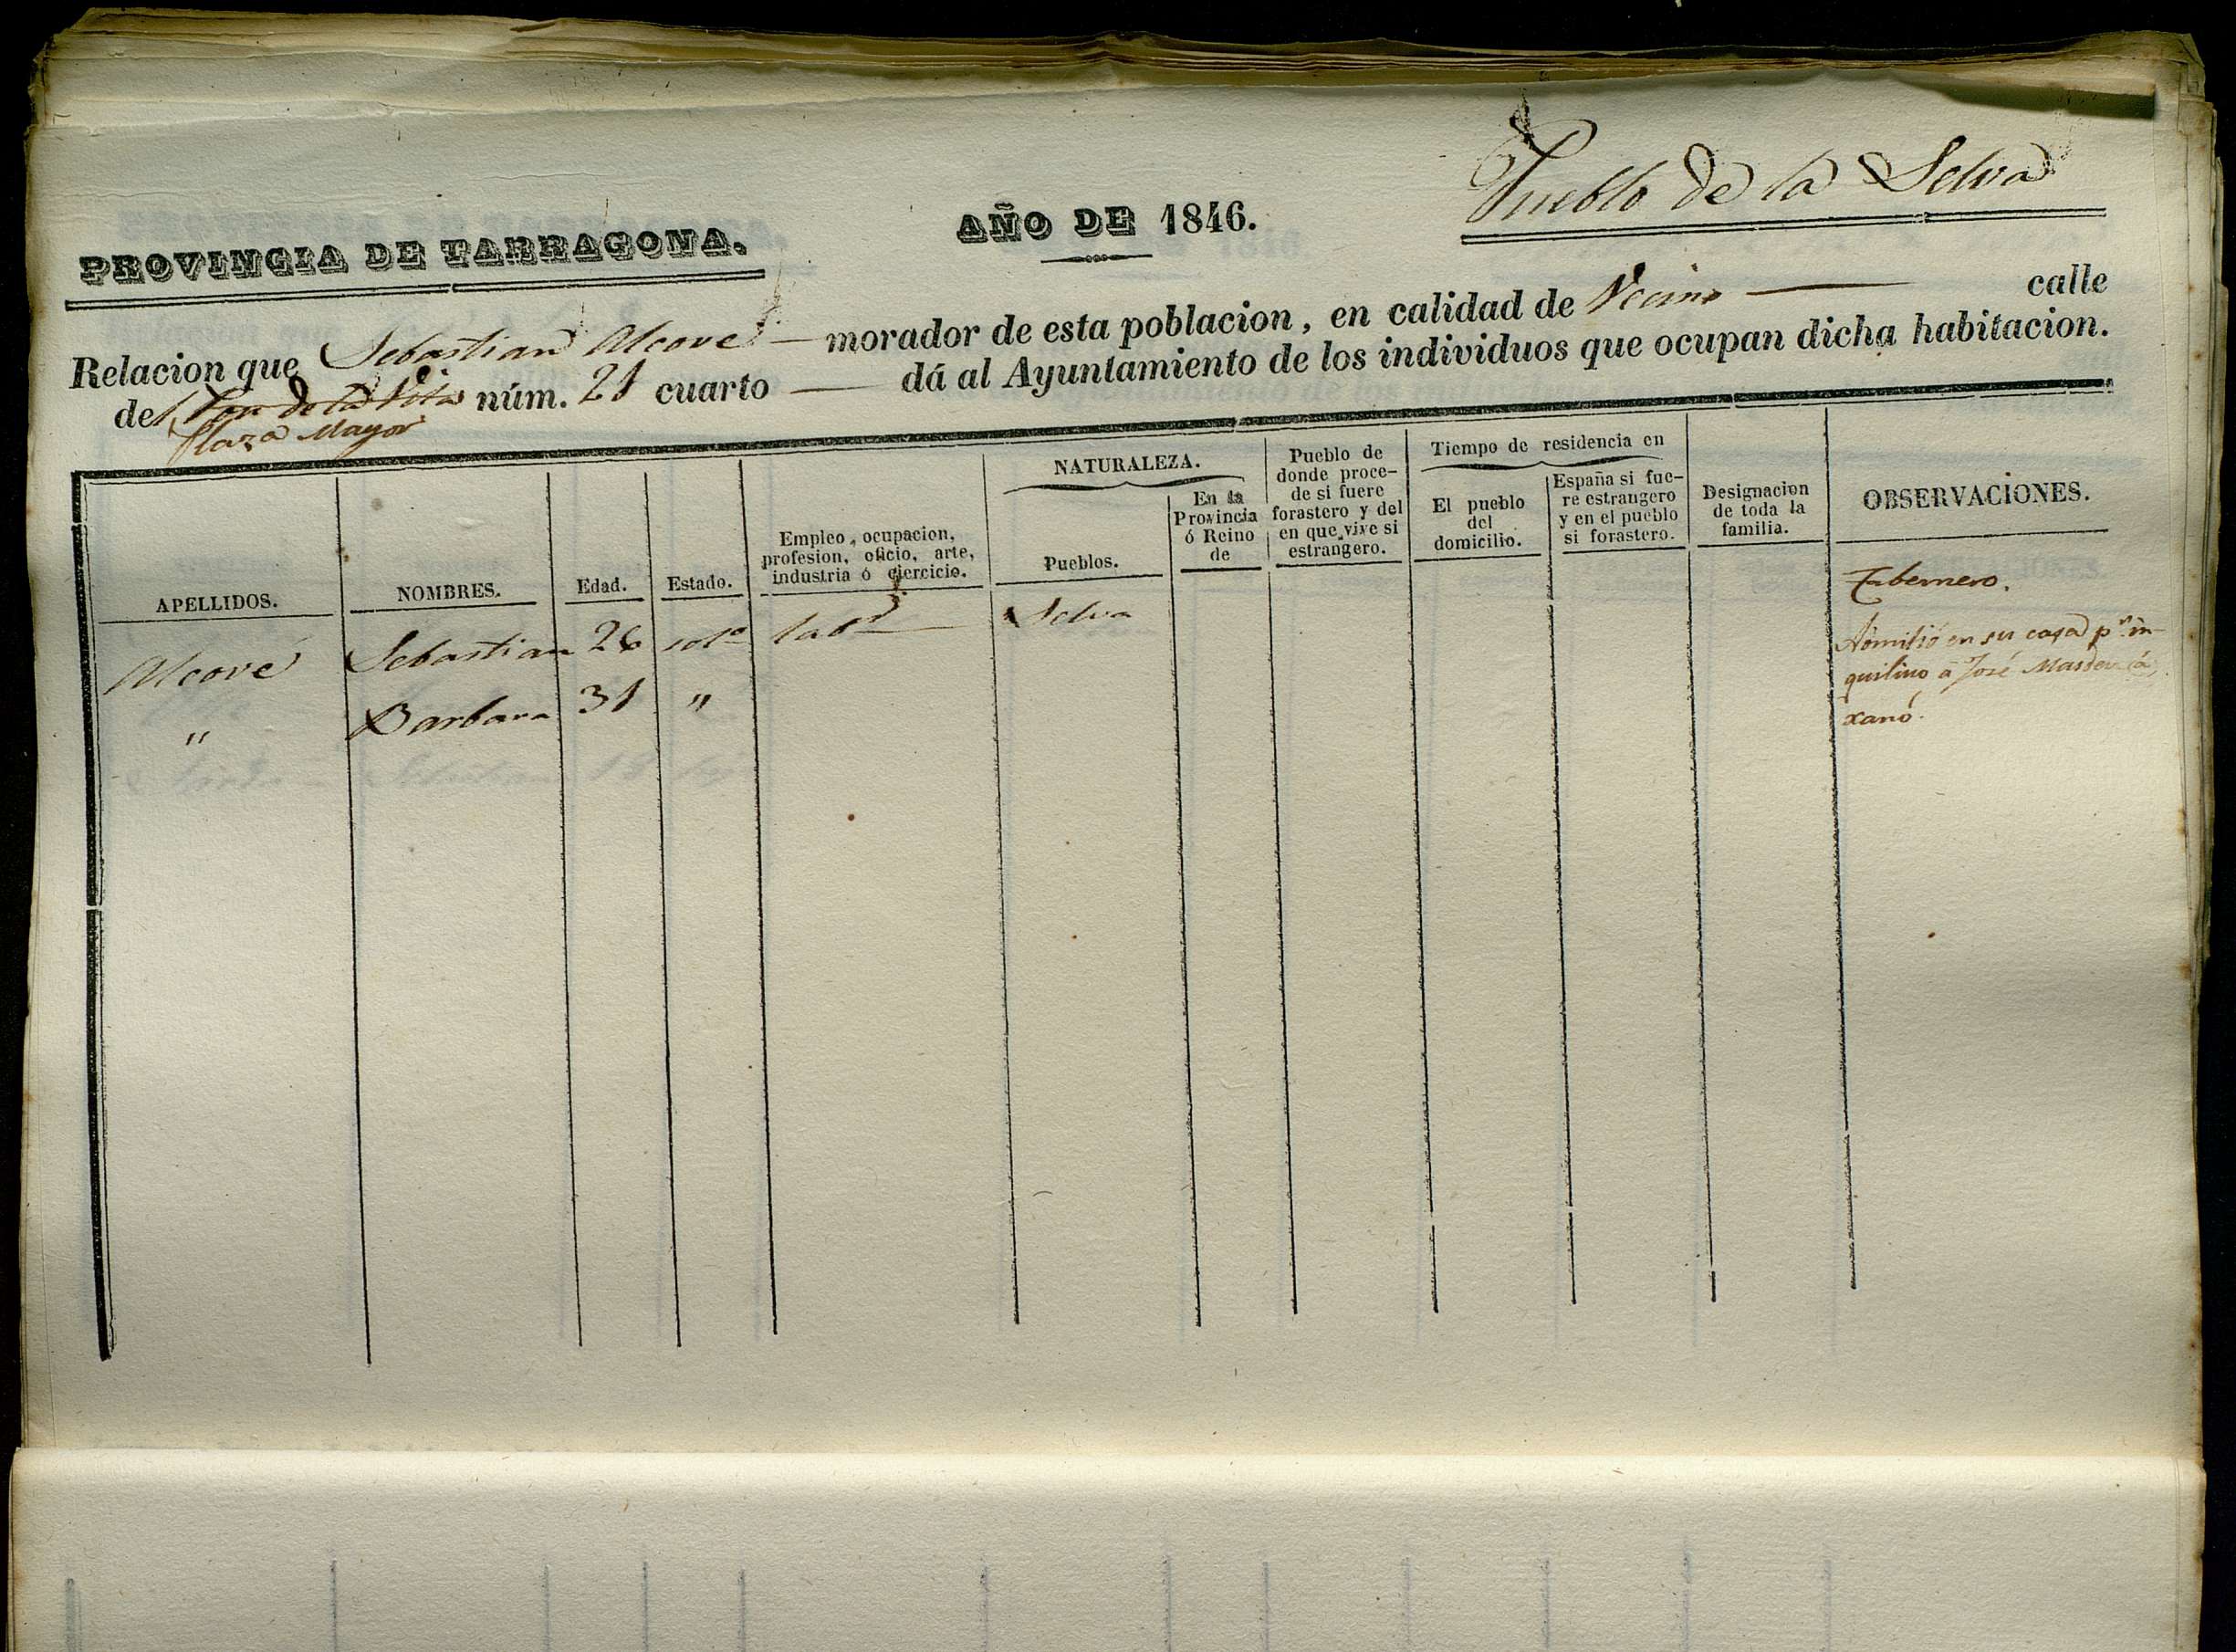 Pueblo de la Selva
AÑO DE 1846.
PROVINCIA DE TARRAGONA.
Relacion que Sebastian Alcové morador de esta poblacion, en calidad de Vecino calle
del núm. 21 cuarto dá al Ayuntamiento de los individuos que ocupan dicha habitacion.
Plaza Mayor
APELLIDOS.
NOMBRES.
Edad.
Estado.
Empleo, ocupacion,
profesion, oficio, arte,
industria ó ejercicio.
NATURALEZA.
Pueblos.
En la
Provincia
ó Reino
de
Pueblo de
donde proce-
de si fuere
forastero y del
en que vive si
estrangero.
Tiempo de residencia en
El pueblo
del
domicilio.
España si fue-
re estrangero
y en el pueblo
si forastero.
Designacion
de toda la
familia.
OBSERVACIONES.
Alcové Sebastian 26 solº labr Selva
" Barbara 31 "
Tabernero.
Admitió en su casa pr in-
quilino á José
xanó.